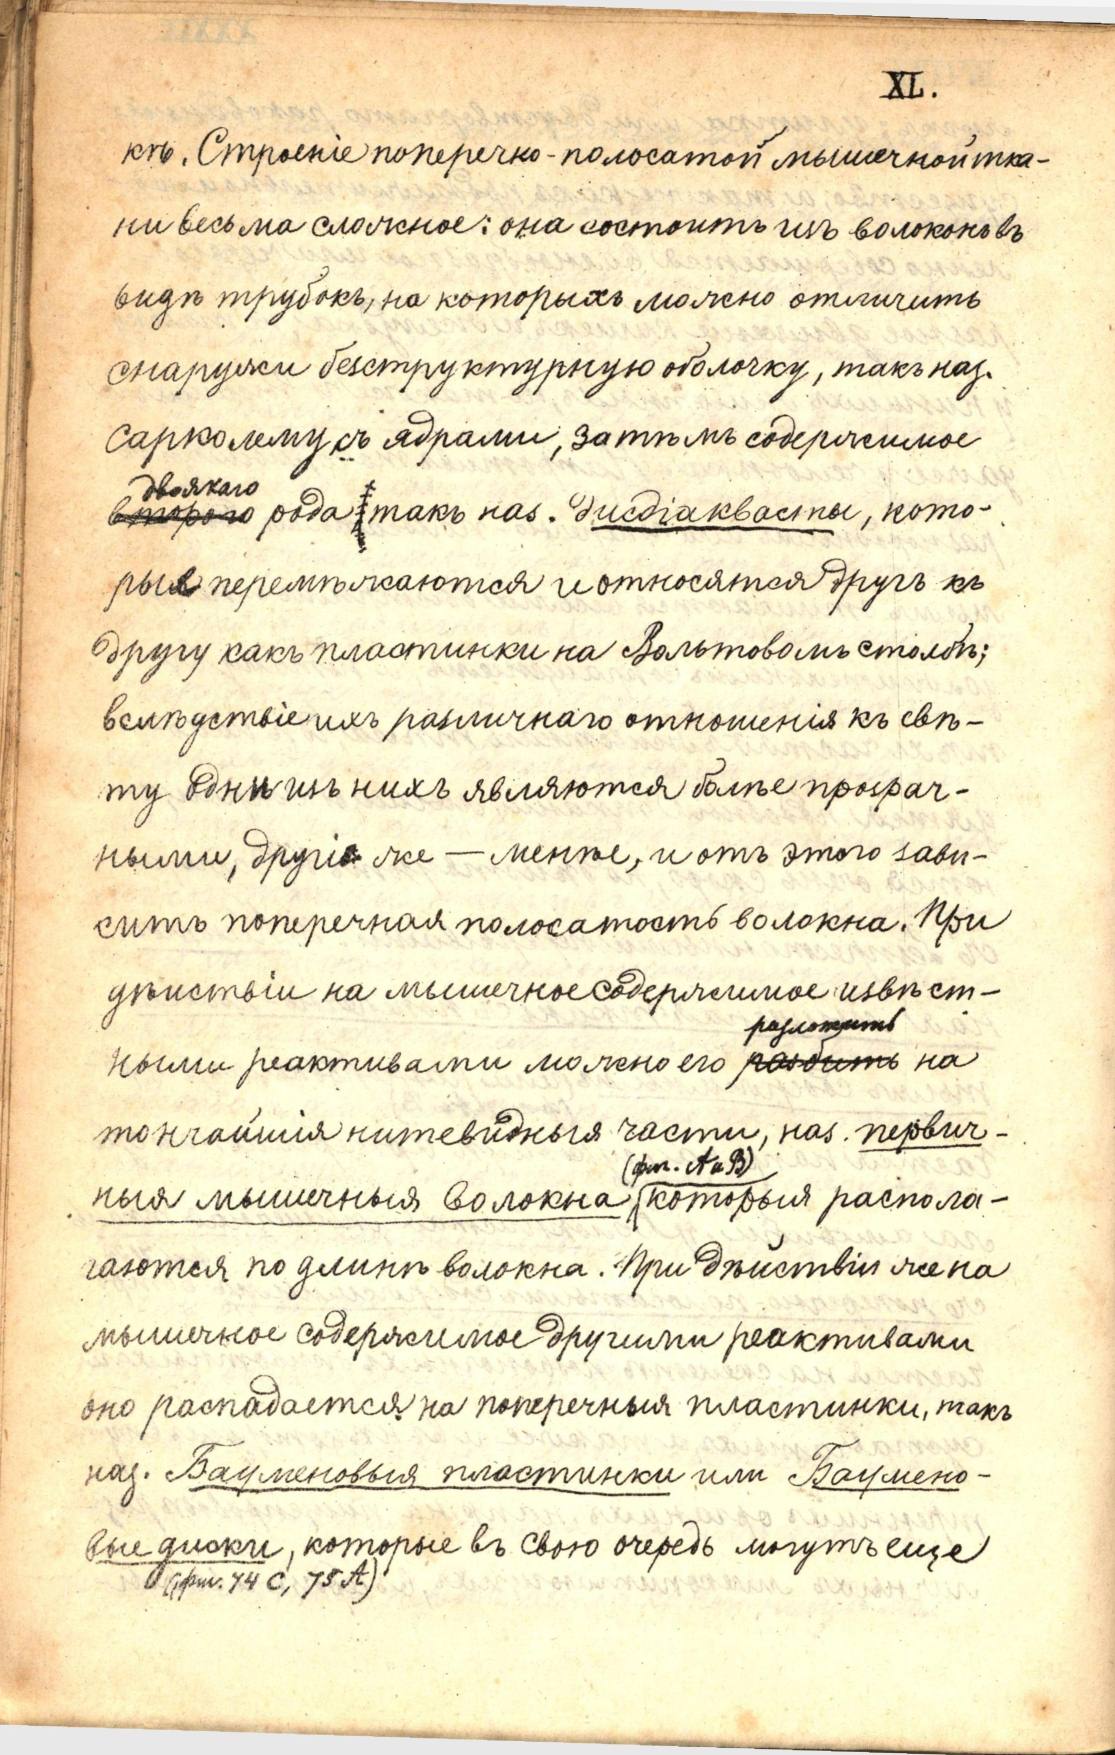 XL.
кѣ. Строеніе поперечно-полосатой мышечной тка-
ни весьма сложное: она состоитъ изъ волоконъ въ
видѣ трубокъ, на которыхъ можно отличить
снаружи безструктурную оболочку, такъ наз.
сарколему съ ядрами, затѣмъ содержимое
двоякаго
второго рода такъ наз. дисдіакласты, кото-
рыя перемѣжаются и относятся другъ къ
другу какъ пластинки на Вольтовомъ столбѣ;
вслѣдствіе ихъ различнаго отношенія къ свѣ-
ту одни изъ нихъ являются болѣе прозрач-
ными, другіе же — менѣе, и отъ этого зави-
ситъ поперечная полосатость волокна. При
дѣйствіи на мышечное содержимое извѣст-
разложить
ными реактивами можно его разбить на
тончайшія нитевидныя части, наз. первич-
(фиг. А и В)
ныя мышечныя волокна которыя распола-
гаются по длинѣ волокна. При дѣйствіи же на
мышечное содержимое другими реактивами
оно распадается на поперечныя пластинки, такъ
наз. Бауменовыя пластинки или Баумено-
вые диски, которые въ свою очередь могутъ еще
(фиг. 74 С, 75 А)